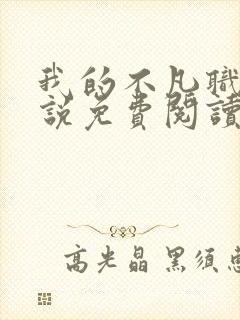 我的不凡職
說免費閱讀
高光晶 黑須